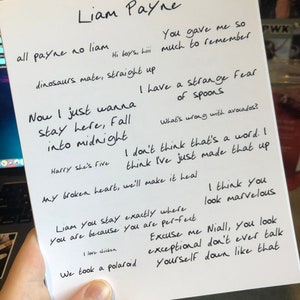 Liam Payne
all payne no liam
Hi boys, Liii
You gave me so
much to remember
dinosaurs mate, straight up
I have a strange fear
of spoons
Now I just wanna
stay here, fall
into midnight
What's wrong with avocados?
Harry she's five
I don't think that's a word. I
think I've just made that up
My broken heart, we'll make it heal
I think you
look marvelous
Liam you stay exactly where
you are because you are per-fect
I love chicken
Excuse me Niall, you look
exceptional don't ever talk
yourself down like that
We took a polaroid
PWK